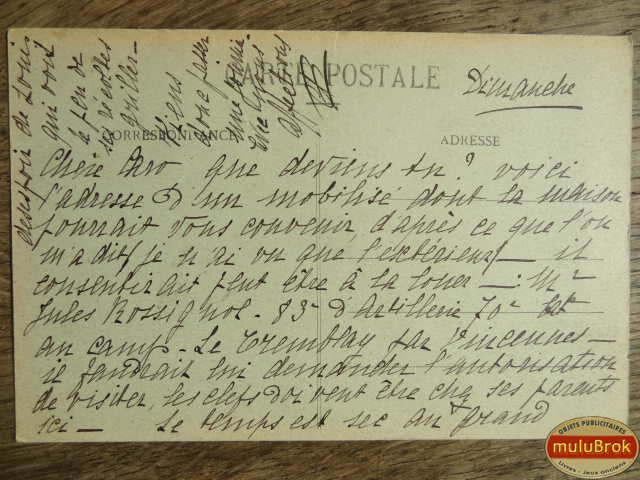 CARTE POSTALE
Dimanche
CORRESPONDANCE
ADRESSE
Chère Caro que deviens tu? voici
l'adresse d'un mobilisé dont la maison
pourrait vous convenir d'après ce que l'on
m'a dit, je n'ai vu que l'extérieur — il
consentirait peut être à la louer —: Mr
Jules Rossignol - 83e d'Artillerie 70e Bie
au camp - Le Tremblay par Vincennes —
il faudrait lui demander l'autorisation
de visiter, les clefs doivent être chez ses parents
ici — Le temps est sec au grand
désespoir de Louis
qui voit
le peu de
ses récoltes
griller -
Viens
donc passer
une journée
affectueux
Objets Publicitaires
muluBrok
Livres - Jeux anciens